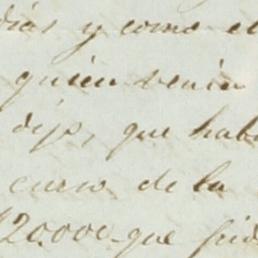 dias y como el
quien venia
dijo, que hab
curso de la
$2000 que pid